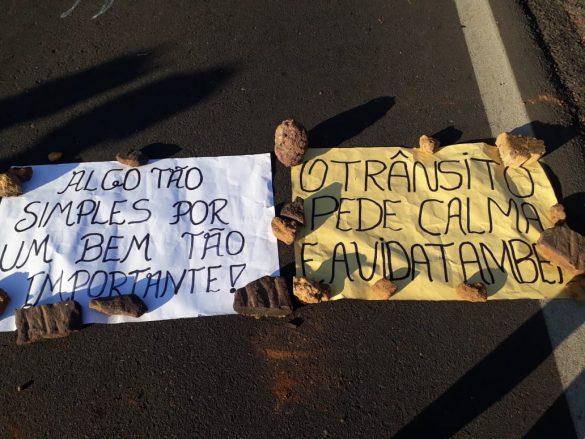 ALGO TÃO
SIMPLES POR
UM BEM TÃO
IMPORTANTE!
O TRÂNSITO
PEDE CALMA
E A VIDA TAMBÉ